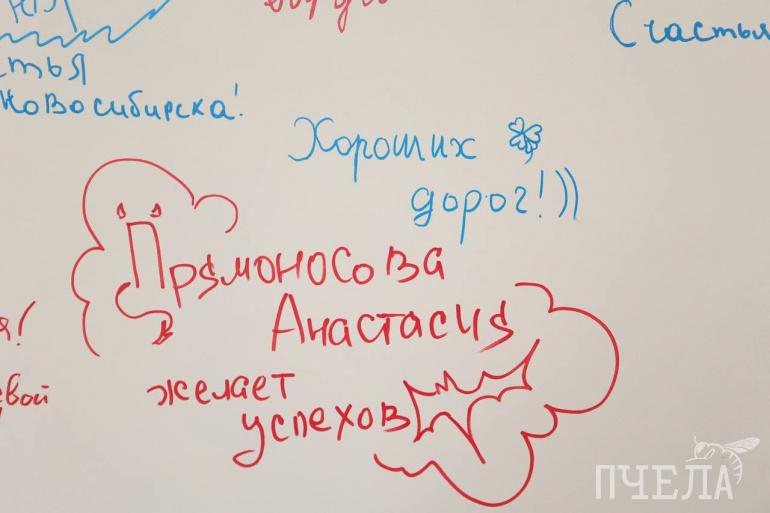 Счастья
стья
Новосибирска!
Хороших
дорог!))
Прямоносова
Анастасия
желает
успехов
я!
евой
ПЧЕЛА